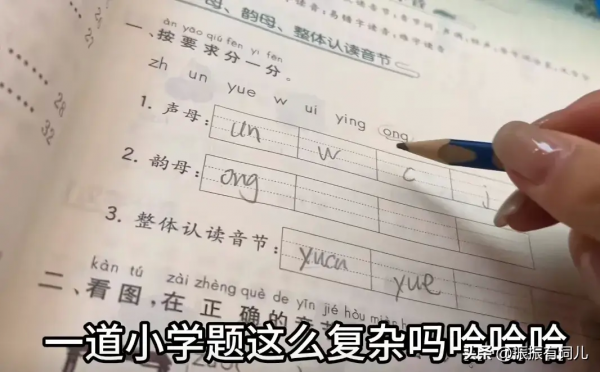 母、韵母、整体认读音节
àn yāo qiú fēn yi fēn
一、按要求分一分。
zh un yue w ui ying ong
1. 声母: un w c j
2. 韵母: ong
3. 整体认读音节: yuan yue
kàn tú zài zhèng què de yīn jié hòu miàn
二、看图,在正确的音
28
32
一道小学题这么复杂吗哈哈哈
头条 @振振有词儿